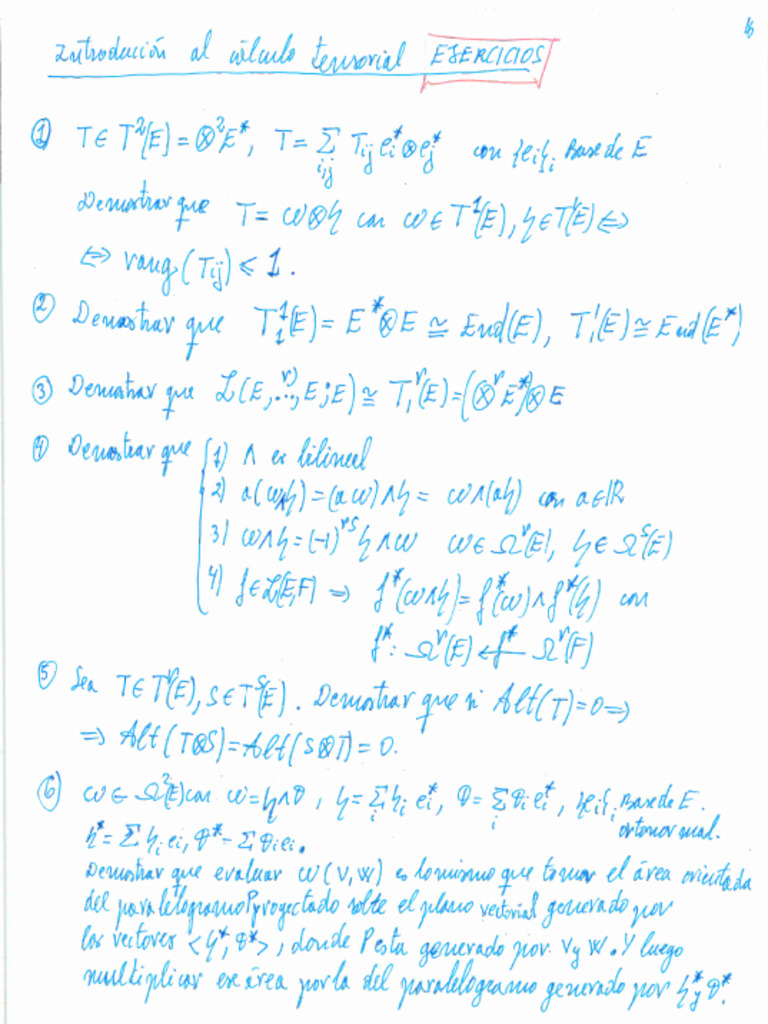 16
Introducción al cálculo tensorial EJERCICIOS
① T ∈ T²(E) = ⊗²E*, T = Σ_{i,j} T_{ij} e_i* ⊗ e_j* con {e_i}_i Base de E
Demostrar que T = ω⊗η con ω ∈ T¹(E), η ∈ T¹(E) ⇔
⇔ rang(T_{ij}) ≤ 1.
② Demostrar que T₁¹(E) = E*⊗E ≅ End(E), T₁¹(E) ≅ End(E*)
③ Demostrar que ℒ(E, r)..., E; E) ≅ T₁ʳ(E) = (⊗ʳE*)⊗E
④ Demostrar que { 1) ∧ es bilineal
2) a(ω∧η) = (aω)∧η = ω∧(aη) con a∈ℝ
3) ω∧η = (-1)^{rs} η∧ω ω ∈ Ωʳ(E), η ∈ Ωˢ(E)
4) f∈ℒ(E,F) ⇒ f*(ω∧η) = f*(ω)∧f*(η) con
f*: Ωʳ(E) ←f*— Ωʳ(F)
⑤ Sea T∈Tʳ(E), S∈Tˢ(E). Demostrar que si Alt(T)=0 ⇒
⇒ Alt(T⊗S) = Alt(S⊗T) = 0.
⑥ ω ∈ Ω²(E) con ω = η∧θ, η = Σ_i η_i e_i*, θ = Σ_i θ_i e_i*, {e_i}_i Base de E.
ortonormal.
η* = Σ η_i e_i, θ* = Σ θ_i e_i.
Demostrar que evaluar ω(v,w) es lo mismo que tomar el área orientada
del paralelogramo P proyectado sobre el plano vectorial generado por
los vectores <η*, θ*>, donde P esta generado por v y w. Y luego
multiplicar ese área por la del paralelogramo generado por η* y θ*.